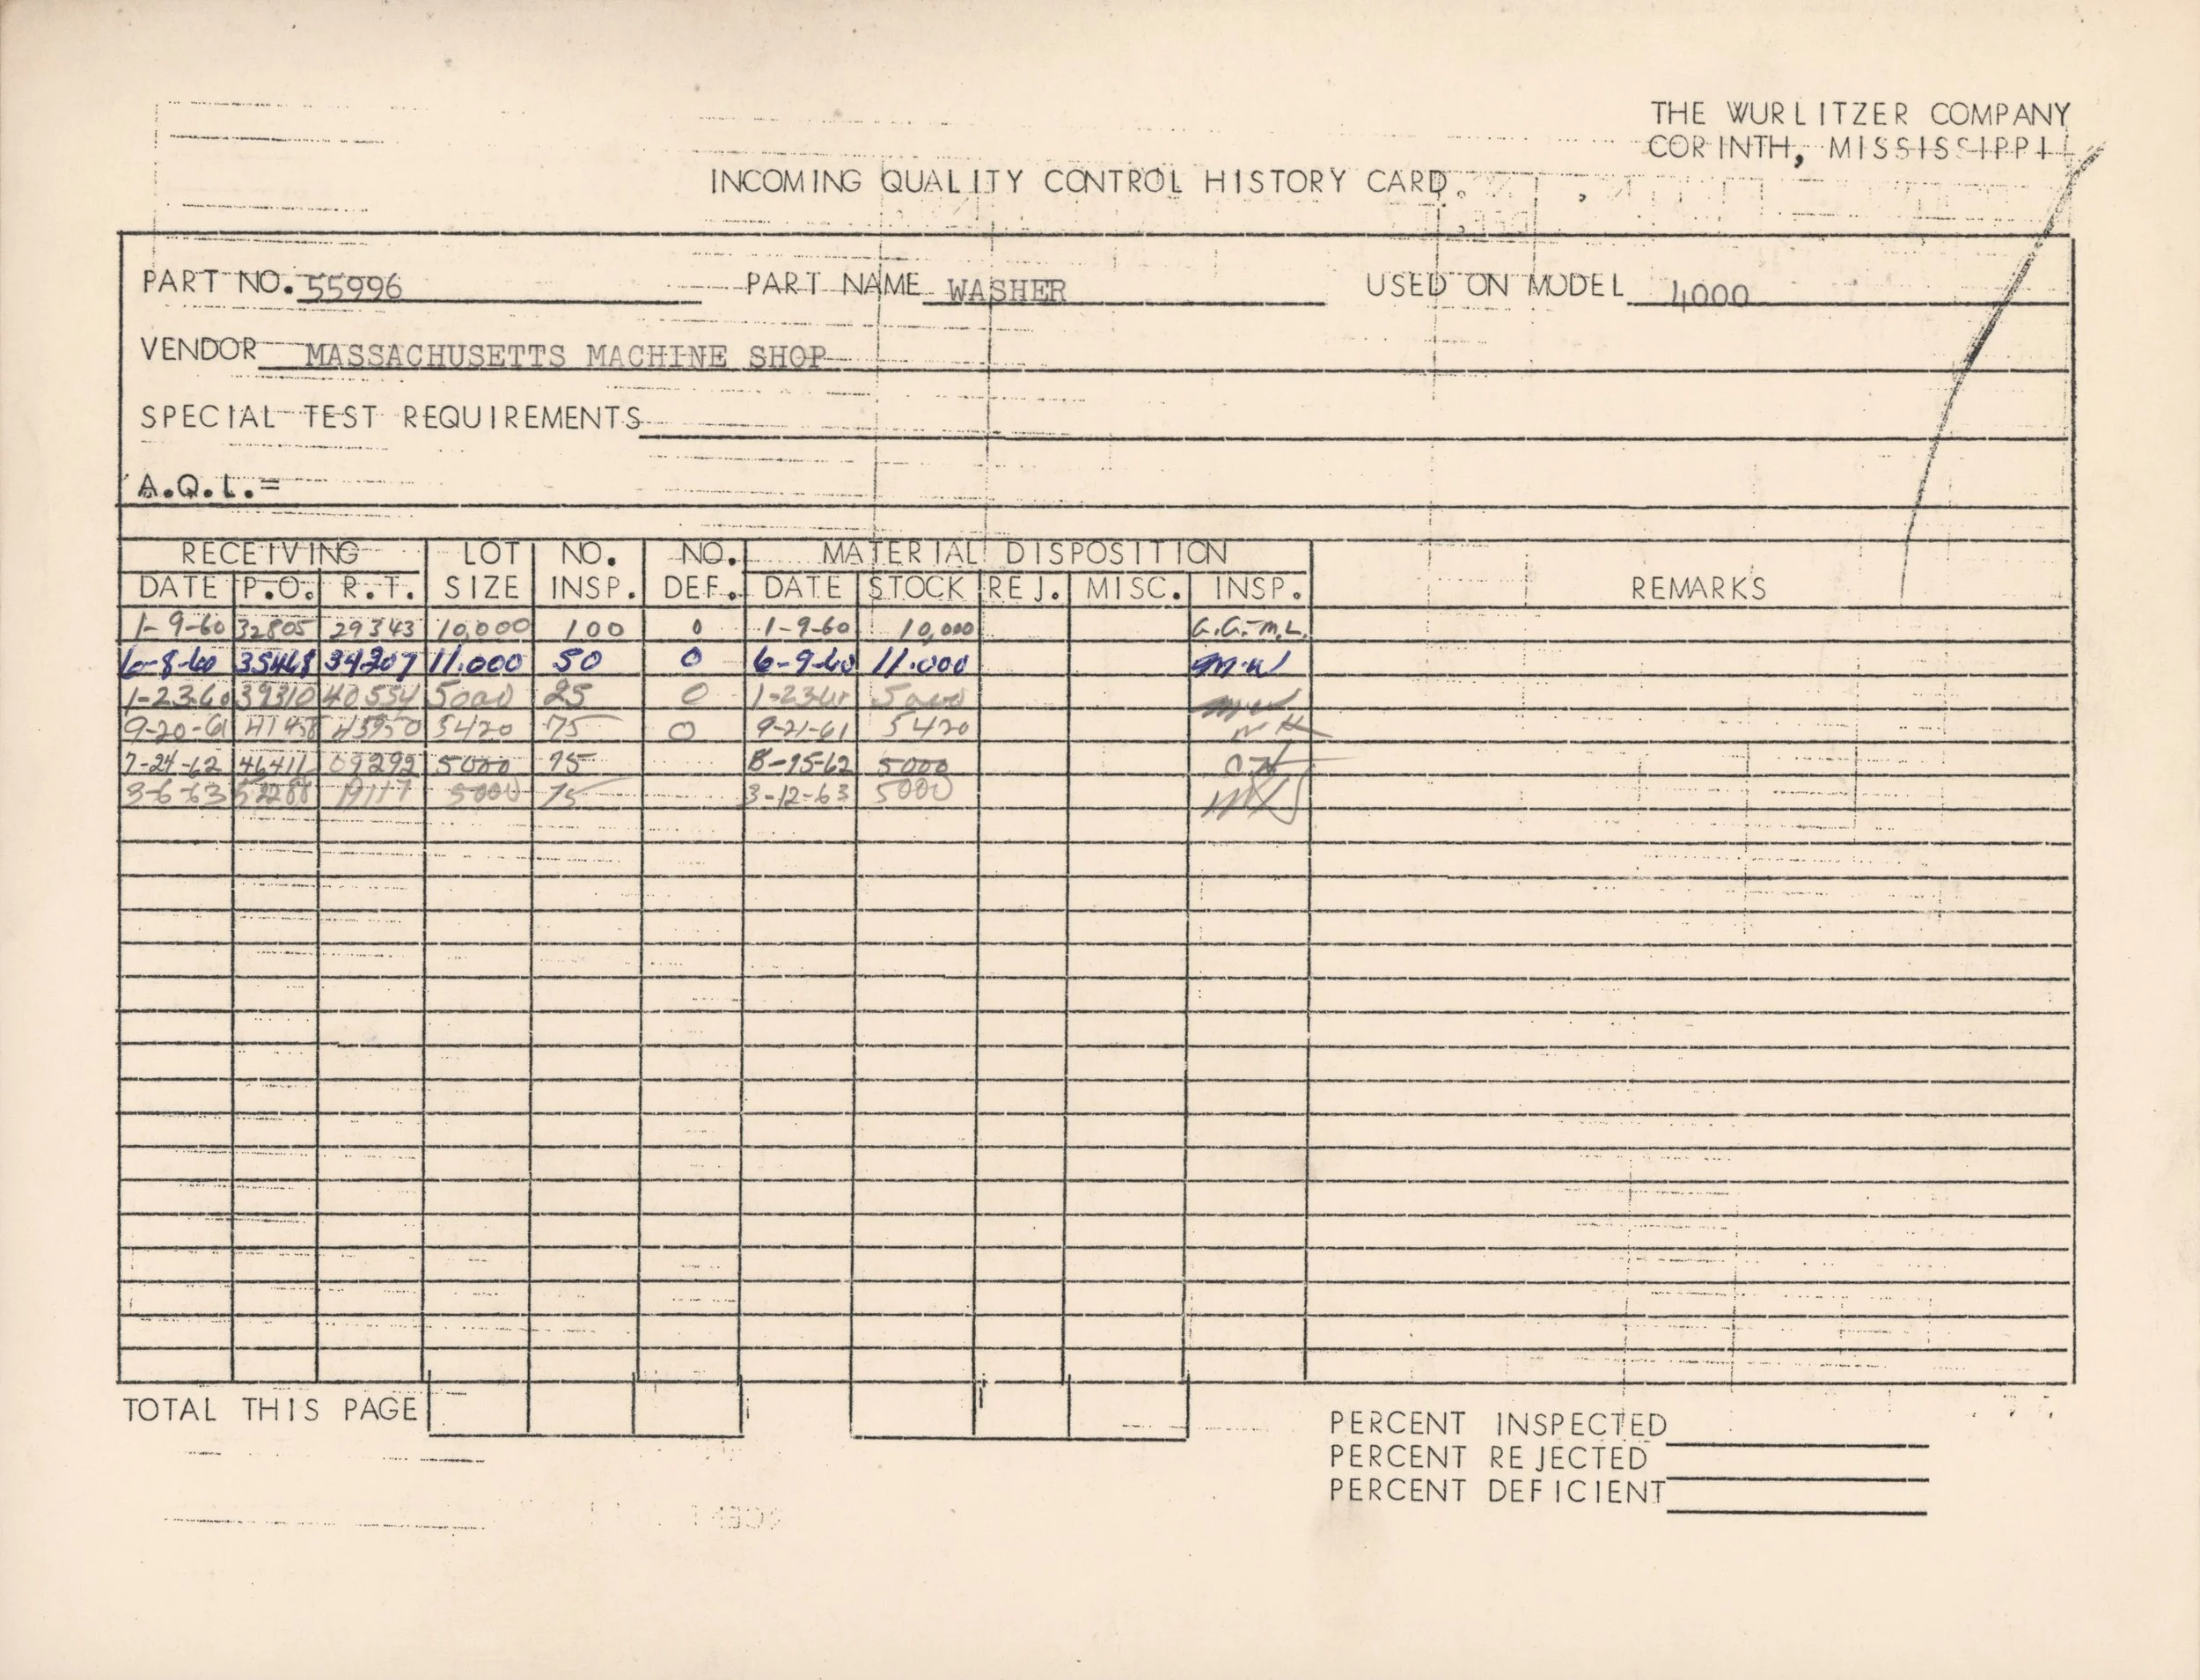 THE WURLITZER COMPANY
CORINTH, MISSISSIPPI
INCOMING QUALITY CONTROL HISTORY CARD.
PART NO. 55996 PART NAME WASHER USED ON MODEL 4000
VENDOR MASSACHUSETTS MACHINE SHOP
SPECIAL TEST REQUIREMENTS
A.Q.L.=
RECEIVING LOT NO. NO. MATERIAL DISPOSITION
DATE P.O. R.T. SIZE INSP. DEF. DATE STOCK REJ. MISC. INSP. REMARKS
1-9-60 32805 29343 10,000 100 0 1-9-60 10,000 G.G.-M.L.
6-8-60 35468 34207 11.000 50 0 6-9-60 11.000 M.W
1-23-60 39310 40534 5000 25 0 5000
9-20-61 5420 75 0 9-21-61 5420
7-24-62 46411 09292 5000 75 8-15-62 5000
3-6-63 19117 5000 75 3-12-63 5000
TOTAL THIS PAGE
PERCENT INSPECTED
PERCENT REJECTED
PERCENT DEFICIENT